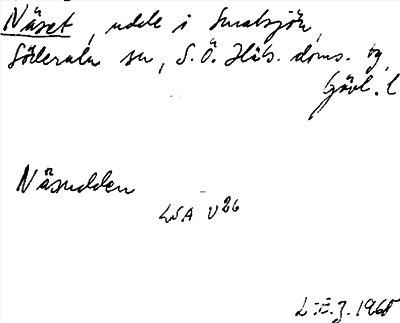 Näset, udde i Smalsjön,
Söderala sn, S. Ö. Häls. doms. tg,
Gävl. l
Näsudden
LSA U26
L.E.J. 1968